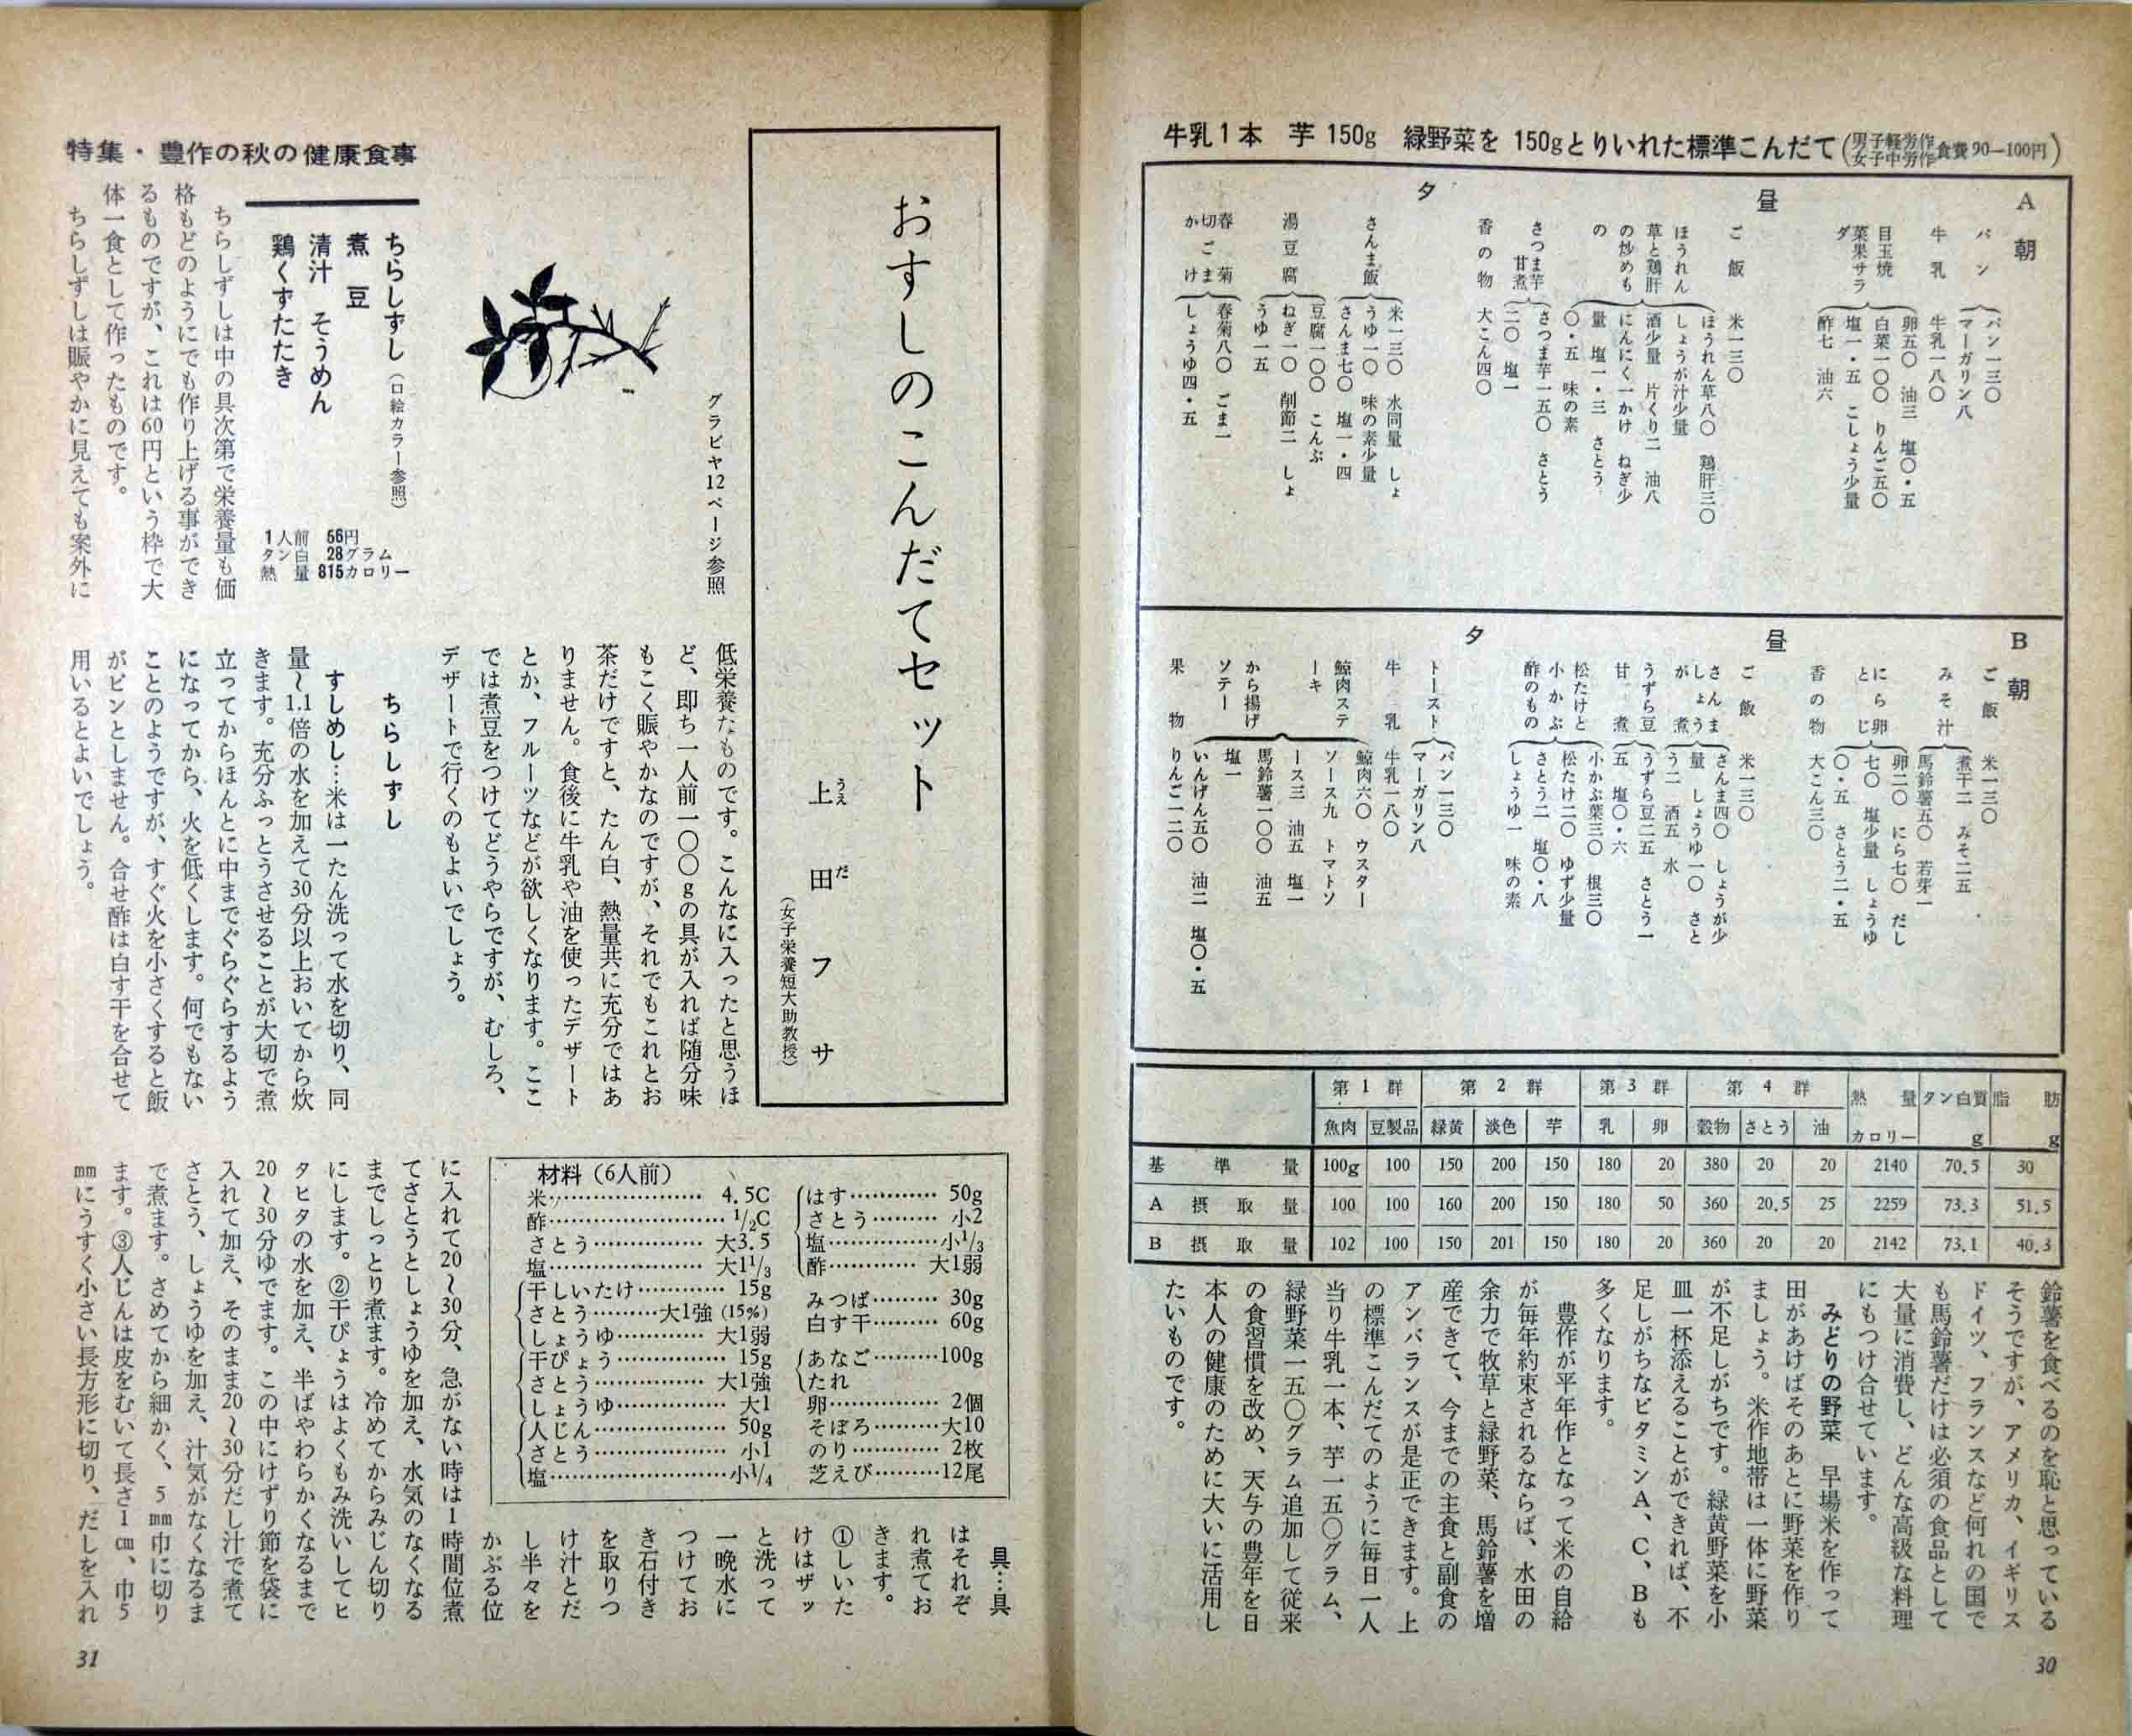 牛乳1本　芋 150g　緑野菜を 150gとりいれた標準こんだて(男子軽労作 女子中労作 食費90—100円)
A
朝
パン
パン一三〇
マーガリン八
牛乳
牛乳一八〇
目玉焼
菜果サラ
ダ
卵五〇　油三　塩〇・五
白菜一〇〇　りんご五〇
塩一・五　こしょう少量
酢七　油六
昼
ご飯
米一三〇
ほうれん
草と鶏肝
の炒めも
の
ほうれん草八〇　鶏肝三〇
しょうが汁少量
酒少量　片くり二　油八
にんにく一かけ　ねぎ少
量　塩一・三　さとう
〇・五　味の素
さつま芋
甘煮
さつま芋一五〇　さとう
二〇　塩一
香の物
大こん四〇
夕
さんま飯
米一三〇　水同量　しょ
うゆ一〇　味の素少量
さんま七〇　塩一・四
湯豆腐
豆腐一〇〇　こんぶ
ねぎ一〇　削節二　しょ
うゆ一五
春菊
切ごま
かけ
春菊八〇　ごま一
しょうゆ四・五
B
朝
ご飯
米一三〇
みそ汁
煮干二　みそ二五
馬鈴薯五〇　若芽一
にら卵
とじ
卵二〇　にら七〇　だし
七〇　塩少量　しょうゆ
〇・五　さとう二・五
香の物
大こん三〇
昼
ご飯
米一三〇
さんま
しょうが煮
さんま四〇　しょうが少
量　しょうゆ一〇　さと
う二　酒五　水
うずら豆
甘煮
うずら豆二五　さとう一
五　塩〇・六
松たけと
小かぶ
酢のもの
小かぶ葉三〇　根三〇
松たけ二〇　ゆず少量
さとう二　塩〇・八
しょうゆ一　味の素
夕
トースト
パン一三〇
マーガリン八
牛乳
牛乳一八〇
鯨肉ステ
ーキ
から揚げ
ソテー
鯨肉六〇　ウスター
ソース九　トマトソ
ース三　油五　塩一
馬鈴薯一〇〇　油五
塩一
いんげん五〇　油二　塩〇・五
果物
りんご一二〇
第1群　第2群　第3群　第4群　熱量カロリー　タン白質g　脂肪g
魚肉　豆製品　緑黄　淡色　芋　乳　卵　穀物　さとう　油
基準量　100g　100　150　200　150　180　20　380　20　20　2140　70.5　30
A摂取量　100　100　160　200　150　180　50　360　20.5　25　2259　73.3　51.5
B摂取量　102　100　150　201　150　180　20　360　20　20　2142　73.1　40.3
鈴薯を食べるのを恥と思っている
そうですが、アメリカ、イギリス
ドイツ、フランスなど何れの国で
も馬鈴薯だけは必須の食品として
大量に消費し、どんな高級な料理
にもつけ合せています。
みどりの野菜　早場米を作って
田があけばそのあとに野菜を作り
ましょう。米作地帯は一体に野菜
が不足しがちです。緑黄野菜を小
皿一杯添えることができれば、不
足しがちなビタミンA、C、Bも
多くなります。
豊作が平年作となって米の自給
が毎年約束されるならば、水田の
余力で牧草と緑野菜、馬鈴薯を増
産できて、今までの主食と副食の
アンバランスが是正できます。上
の標準こんだてのように毎日一人
当り牛乳一本、芋一五〇グラム、
緑野菜一五〇グラム追加して従来
の食習慣を改め、天与の豊年を日
本人の健康のために大いに活用し
たいものです。
30
おすしのこんだてセット
上田フサ
うえだ
(女子栄養短大助教授)
グラビヤ12ページ参照
特集・豊作の秋の健康食事
ちらしずし(口絵カラー参照)
煮豆
清汁　そうめん
鶏くずたたき
1人前　56円
タン白　28グラム
熱量　815カロリー
ちらしずしは中の具次第で栄養量も価
格もどのようにでも作り上げる事ができ
るものですが、これは60円という枠で大
体一食として作ったものです。
ちらしずしは賑やかに見えても案外に
低栄養なものです。こんなに入ったと思うほ
ど、即ち一人前一〇〇gの具が入れば随分味
もこく賑やかなのですが、それでもこれとお
茶だけですと、たん白、熱量共に充分ではあ
りません。食後に牛乳や油を使ったデザート
とか、フルーツなどが欲しくなります。ここ
では煮豆をつけてどうやらですが、むしろ、
デザートで行くのもよいでしょう。
ちらしずし
すしめし…米は一たん洗って水を切り、同
量〜1.1倍の水を加えて30分以上おいてから炊
きます。充分ふっとうさせることが大切で煮
立ってからほんとに中までぐらぐらするよう
になってから、火を低くします。何でもない
ことのようですが、すぐ火を小さくすると飯
がピンとしません。合せ酢は白す干を合せて
用いるとよいでしょう。
材料(6人前)
米…………4.5C
酢…………1/2C
さとう…………大3.5
塩…………大1 1/3
干しいたけ…………15g
さとう…………大1強(15%)
しょうゆ…………大1弱
干ぴょう…………15g
さとう…………大1強
しょうゆ…………大1
人じん…………50g
さとう…………小1
塩…………小1/4
はす…………50g
さとう…………小2
塩…………小1/3
酢…………大1弱
みつば…………30g
白す干…………60g
あなご…………100g
たれ
卵…………2個
そぼろ…………大10
のり…………2枚
芝えび…………12尾
具…具
はそれぞ
れ煮てお
きます。
①しいた
けはザッ
と洗って
一晩水に
つけてお
き石付き
を取りつ
け汁とだ
し半々を
かぶる位
に入れて20〜30分、急がない時は1時間位煮
てさとうとしょうゆを加え、水気のなくなる
までしっとり煮ます。冷めてからみじん切り
にします。②干ぴょうはよくもみ洗いしてヒ
タヒタの水を加え、半ばやわらかくなるまで
20〜30分ゆでます。この中にけずり節を袋に
入れて加え、そのまま20〜30分だし汁で煮て
さとう、しょうゆを加え、汁気がなくなるま
で煮ます。さめてから細かく、5㎜巾に切り
ます。③人じんは皮をむいて長さ1㎝、巾5
㎜にうすく小さい長方形に切り、だしを入れ
31